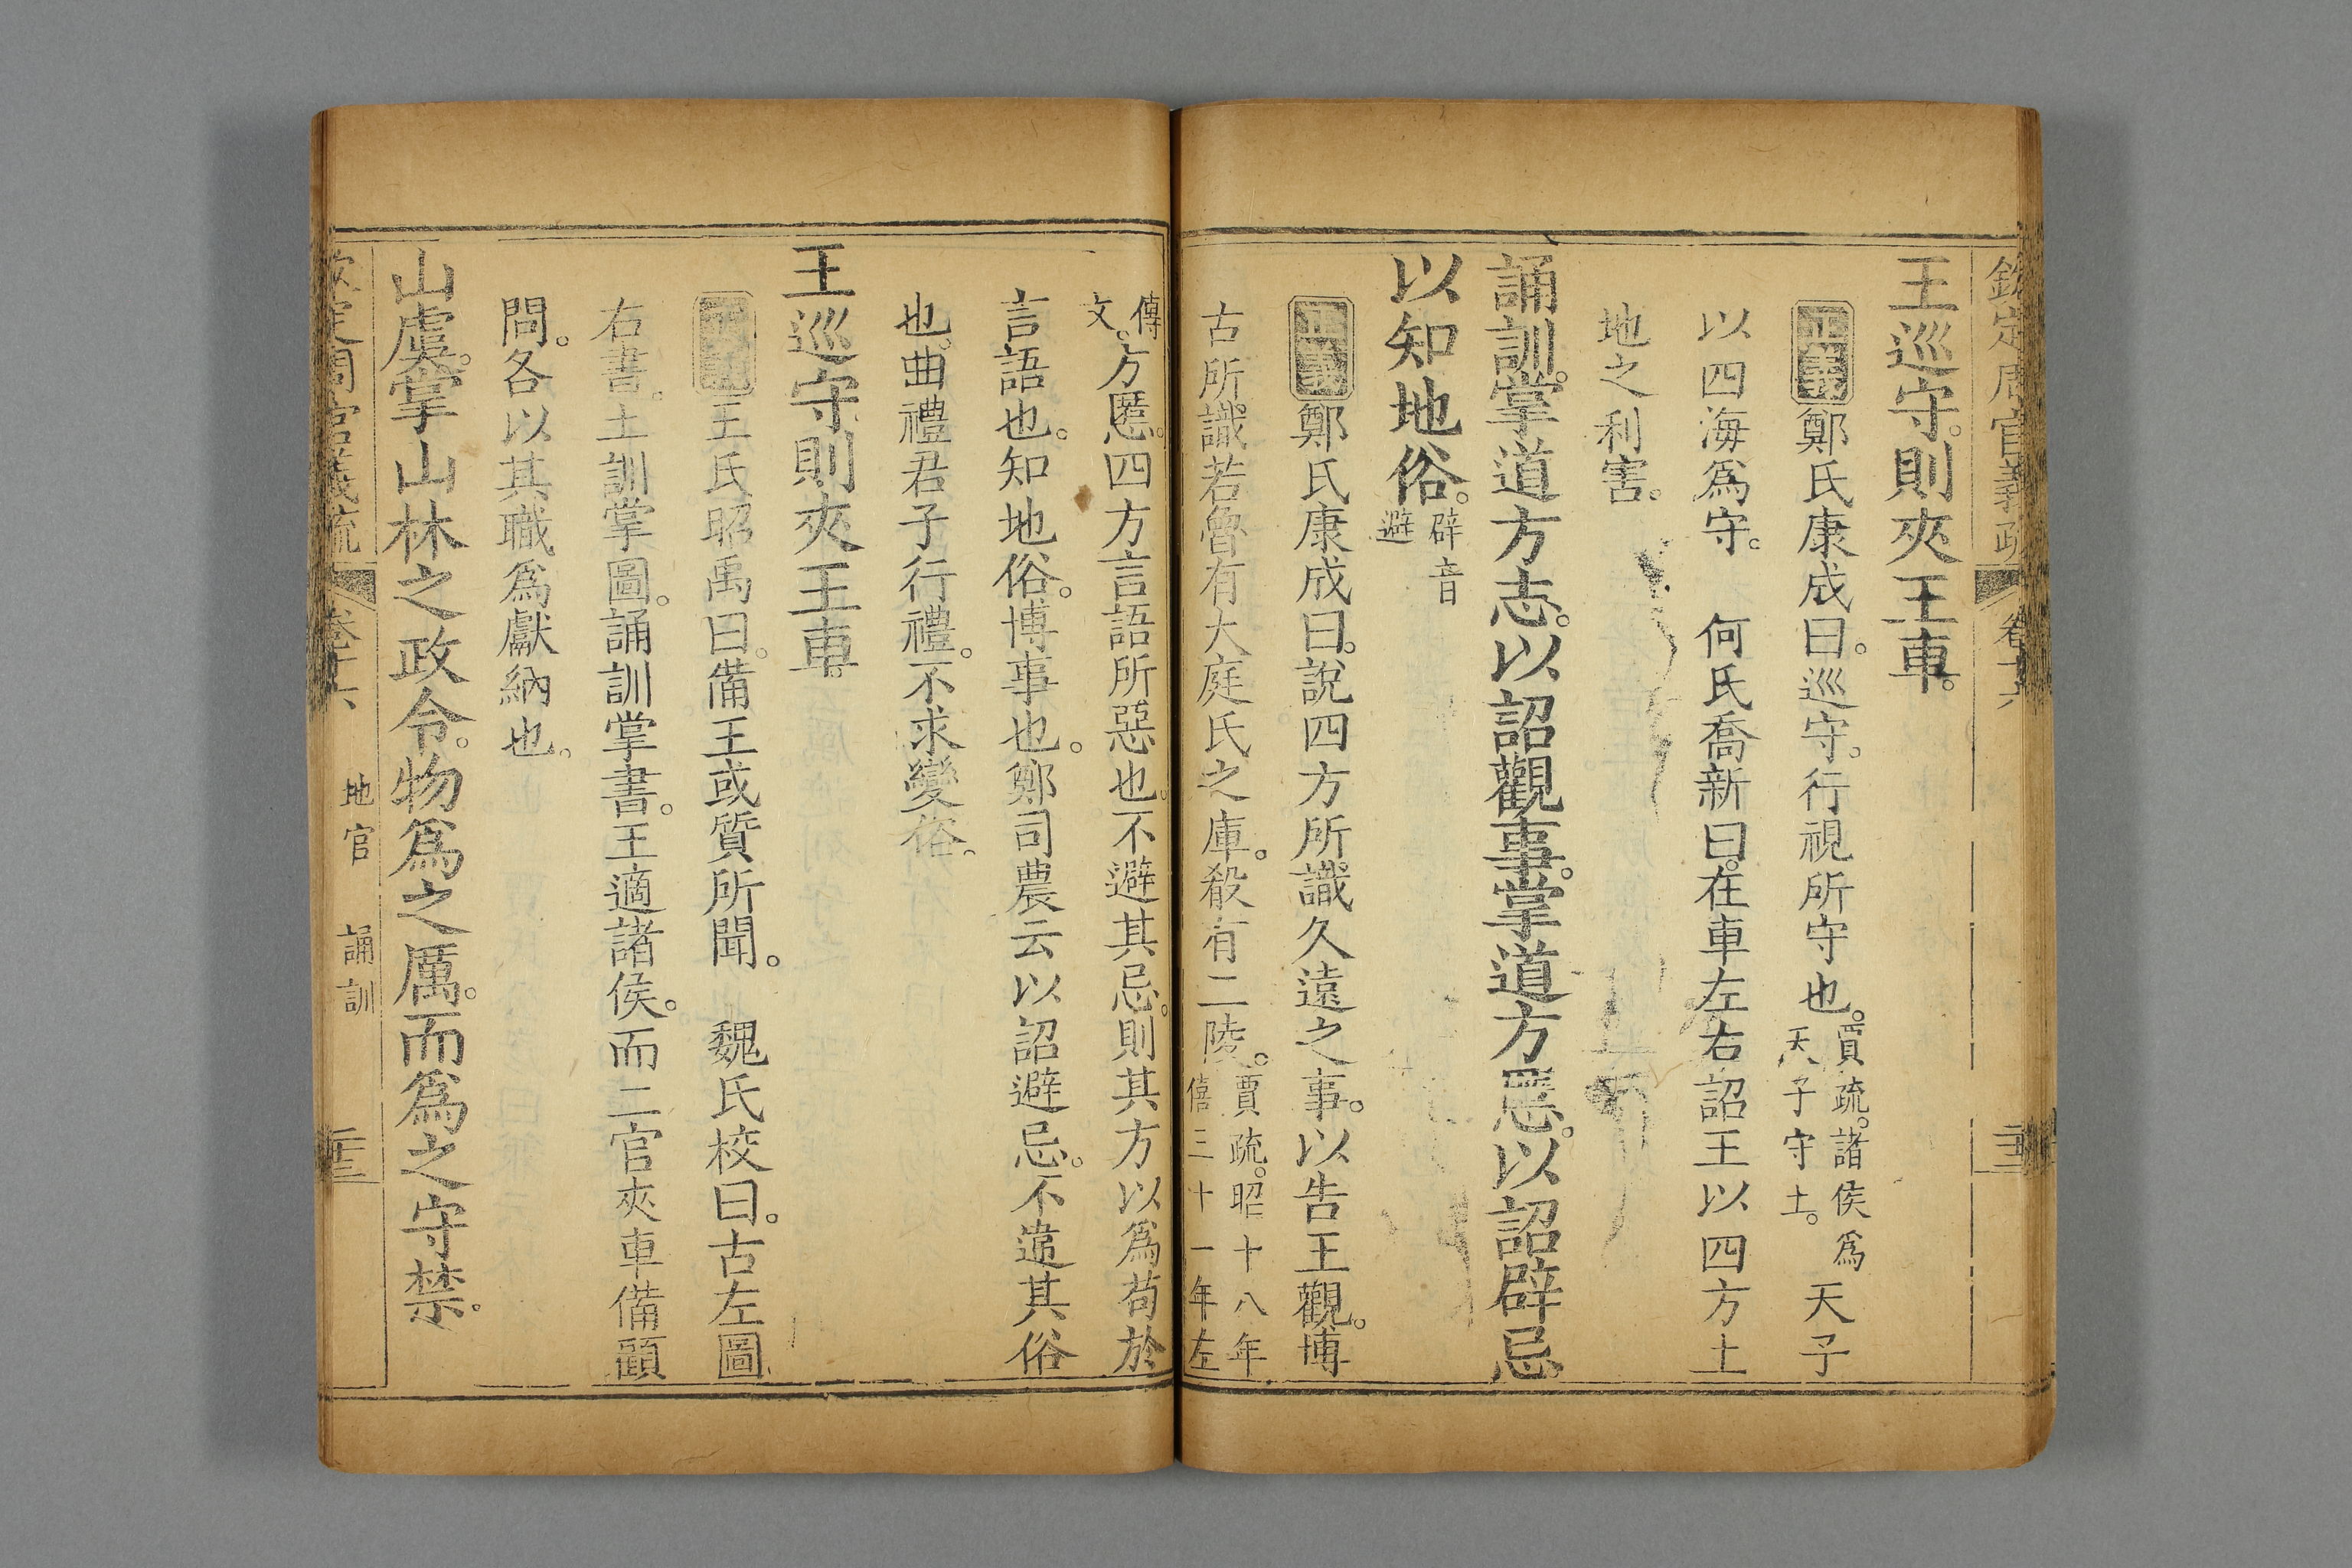 欽定周官義疏 卷十六 二十三
王巡守。則夾王車。
正義 鄭氏康成曰。巡守。行視所守也。賈疏。諸侯爲天子守土。天子
以四海爲守。 何氏喬新曰。在車左右詔王以四方土
地之利害。
誦訓。掌道方志。以詔觀事。掌道方慝。以詔辟忌。
以知地俗。辟音避
正義 鄭氏康成曰。說四方所識久遠之事。以告王觀。博
古所識若魯有大庭氏之庫。殽有二陵。賈疏。昭十八年僖三十一年左
傳文。方慝。四方言語所惡也。不避其忌。則其方以爲苟於
言語也。知地俗。博事也。鄭司農云以詔避忌。不違其俗
也。曲禮君子行禮。不求變俗。
王巡守。則夾王車。
王氏昭禹曰。備王或質所聞。 魏氏校曰。古左圖
右書。土訓掌圖。誦訓掌書。王適諸侯。而二官夾車備顧
問。各以其職爲獻納也。
山虞。掌山林之政令。物爲之厲。而爲之守禁。
欽定周官義疏 卷十六 地官 誦訓 二十三